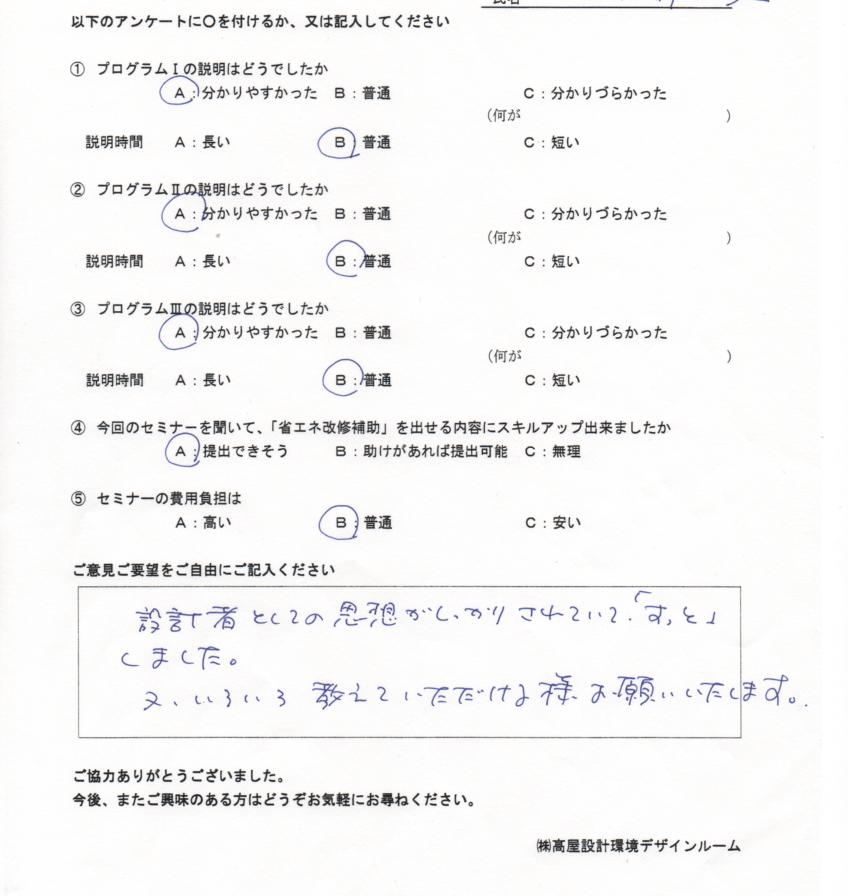 氏名
以下のアンケートに〇を付けるか、又は記入してください
① プログラムⅠの説明はどうでしたか
A：分かりやすかった B：普通 C：分かりづらかった
（何が ）
説明時間 A：長い B：普通 C：短い
② プログラムⅡの説明はどうでしたか
A：分かりやすかった B：普通 C：分かりづらかった
（何が ）
説明時間 A：長い B：普通 C：短い
③ プログラムⅢの説明はどうでしたか
A：分かりやすかった B：普通 C：分かりづらかった
（何が ）
説明時間 A：長い B：普通 C：短い
④ 今回のセミナーを聞いて、「省エネ改修補助」を出せる内容にスキルアップ出来ましたか
A：提出できそう B：助けがあれば提出可能 C：無理
⑤ セミナーの費用負担は
A：高い B：普通 C：安い
ご意見ご要望をご自由にご記入ください
設計者としての思想がしっかりされていて、「すっと」
しました。
又、いろいろ教えていただける様、お願いいたします。
ご協力ありがとうございました。
今後、またご興味のある方はどうぞお気軽にお尋ねください。
㈱高屋設計環境デザインルーム